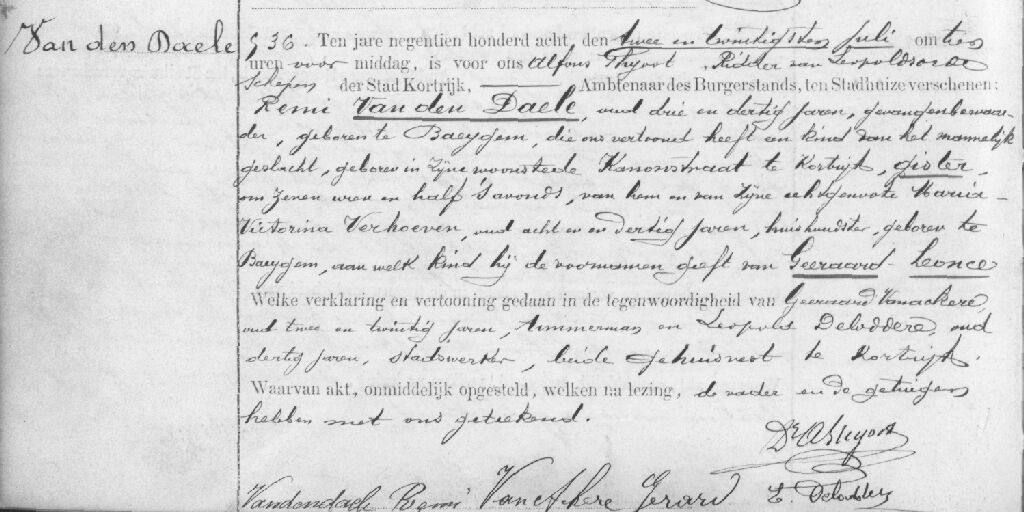 Van den Daele
536. Ten jare negentien honderd acht, den twee en twintigsten juli om tien
uren voor middag, is voor ons Alfons Thyoot, Ridder van Leopoldsorde
Schepen der Stad Kortrijk, Ambtenaar des Burgerstands, ten Stadhuize verschenen:
Remi Van den Daele, oud drie en dertig jaren, gevangenbewaar-
der, geboren te Baeygem, die ons vertoond heeft een kind van het mannelijk
geslacht, geboren in zijne woonstede Kanonstraat te Kortrijk, gister,
om zeven uren en half s'avonds, van hem en van zijne echtgenoote Maria-
Victorina Verhoeven, oud acht en dertig jaren, huishoudster, geboren te
Baeygem, aan welk kind hij de voornamen geeft van Geeraard-Leonce
Welke verklaring en vertooning gedaan in de tegenwoordigheid van Geeraard Vanackere,
oud twee en twintig jaren, timmerman en Leopold Deloddere, oud
dertig jaren, stadswerker, beide gehuisvest te Kortrijk.
Waarvan akt, onmiddelijk opgesteld, welken na lezing, de vader en de getuigen
hebben met ons geteekend.
Vandendaele Remi Van Akere Gerard